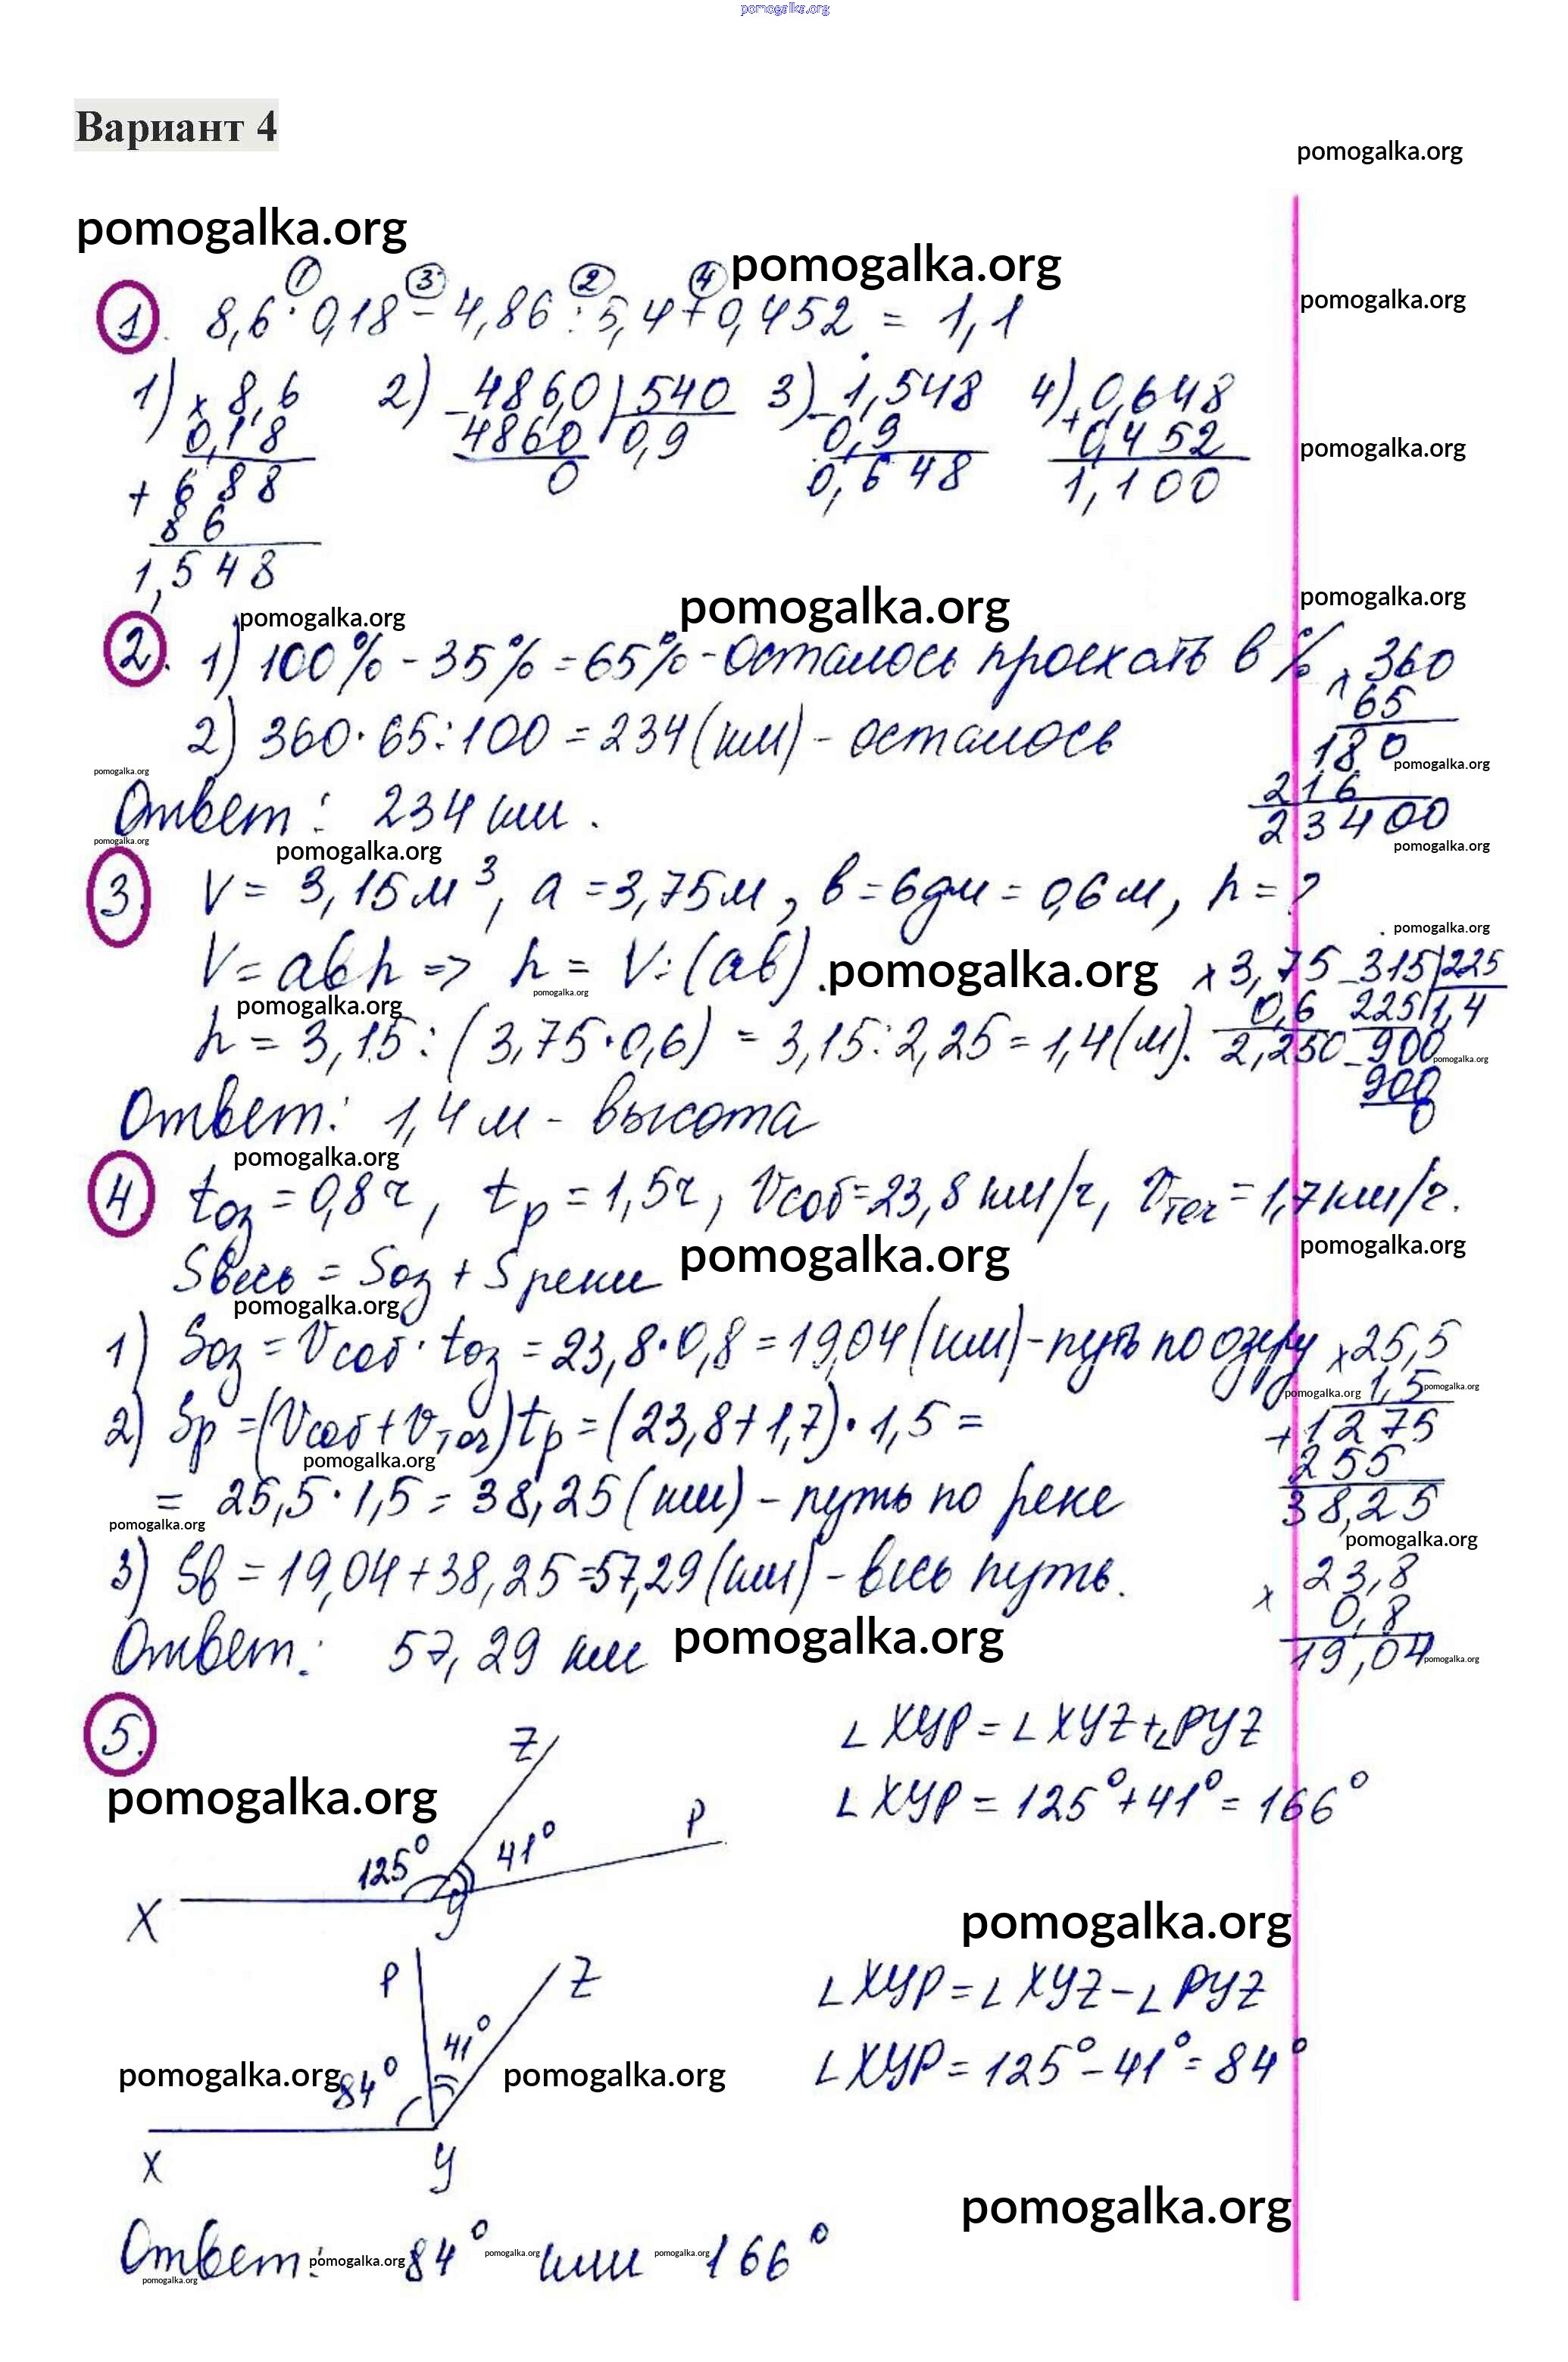 pomogalka.org
Вариант 4
pomogalka.org
pomogalka.org
pomogalka.org
pomogalka.org
① ③ ② ④
1. 8,6 · 0,18 - 4,86 : 5,4 + 0,452 = 1,1
1) × 8,6 2) - 486,0 | 540 3) - 1,548 4) + 0,648
0,18 4860 | 0,9 0,9 0,452
+ 688 0 0,648 1,100
86
1,548
pomogalka.org
pomogalka.org
pomogalka.org
pomogalka.org
2. 1) 100% - 35% = 65% - осталось проехать в % × 360
65
2) 360 · 65 : 100 = 234 (км) - осталось 180
pomogalka.org
pomogalka.org
216
Ответ: 234 км. 23400
pomogalka.org
pomogalka.org
pomogalka.org
3. V = 3,15 м³, a = 3,75 м, в = 6 дм = 0,6 м, h = ?
pomogalka.org
V = авh => h = V : (aв). × 3,75 - 315 | 225
pomogalka.org
pomogalka.org
pomogalka.org
0,6 225 | 1,4
h = 3,15 : (3,75 · 0,6) = 3,15 : 2,25 = 1,4 (м). 2,250 - 900
pomogalka.org
900
0
Ответ: 1,4 м - высота
pomogalka.org
4. tоз = 0,8 ч, tр = 1,5 ч, Vсоб = 23,8 км/ч, Vтеч = 1,7 км/ч.
pomogalka.org
pomogalka.org
Sвесь = Sоз + Sреки
pomogalka.org
1) Sоз = Vсоб · tоз = 23,8 · 0,8 = 19,04 (км) - путь по озеру × 25,5
pomogalka.org
pomogalka.org
1,5
2) Sр = (Vсоб + Vтеч) tр = (23,8 + 1,7) · 1,5 = + 1275
pomogalka.org
255
= 25,5 · 1,5 = 38,25 (км) - путь по реке 38,25
pomogalka.org
pomogalka.org
3) Sв = 19,04 + 38,25 = 57,29 (км) - весь путь. × 23,8
0,8
Ответ: 57,29 км 19,04
pomogalka.org
pomogalka.org
5. Z ∠XYP = ∠XYZ + ∠PYZ
pomogalka.org
∠XYP = 125° + 41° = 166°
P
125° 41°
X Y
pomogalka.org
P Z ∠XYP = ∠XYZ - ∠PYZ
41°
84° ∠XYP = 125° - 41° = 84°
pomogalka.org
pomogalka.org
X Y
pomogalka.org
Ответ: 84° или 166°
pomogalka.org
pomogalka.org
pomogalka.org
pomogalka.org